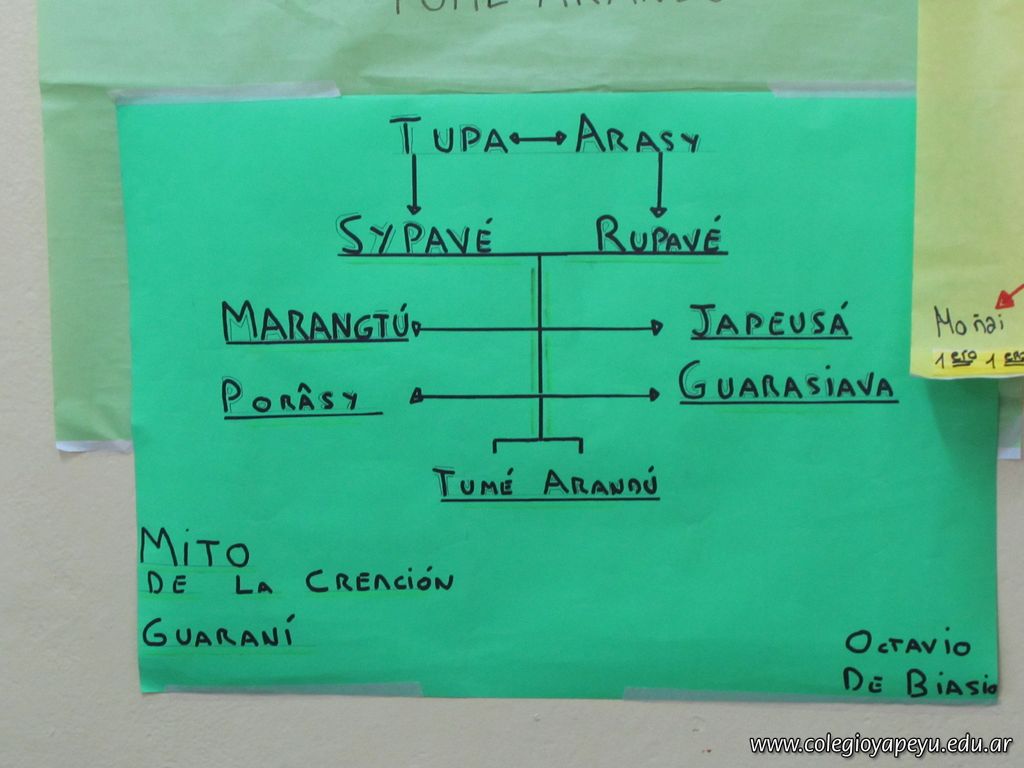 TUMÉ ARANDÚ
TUPA ARASY
SYPAVÉ RUPAVÉ
MARANGTÚ JAPEUSÁ
PORÂSY GUARASIAVA
TUMÉ ARANDÚ
MITO
DE LA CREACIÓN
GUARANÍ
OCTAVIO
DE BIASIO
Moñai
1ero 1era
www.colegioyapeyu.edu.ar